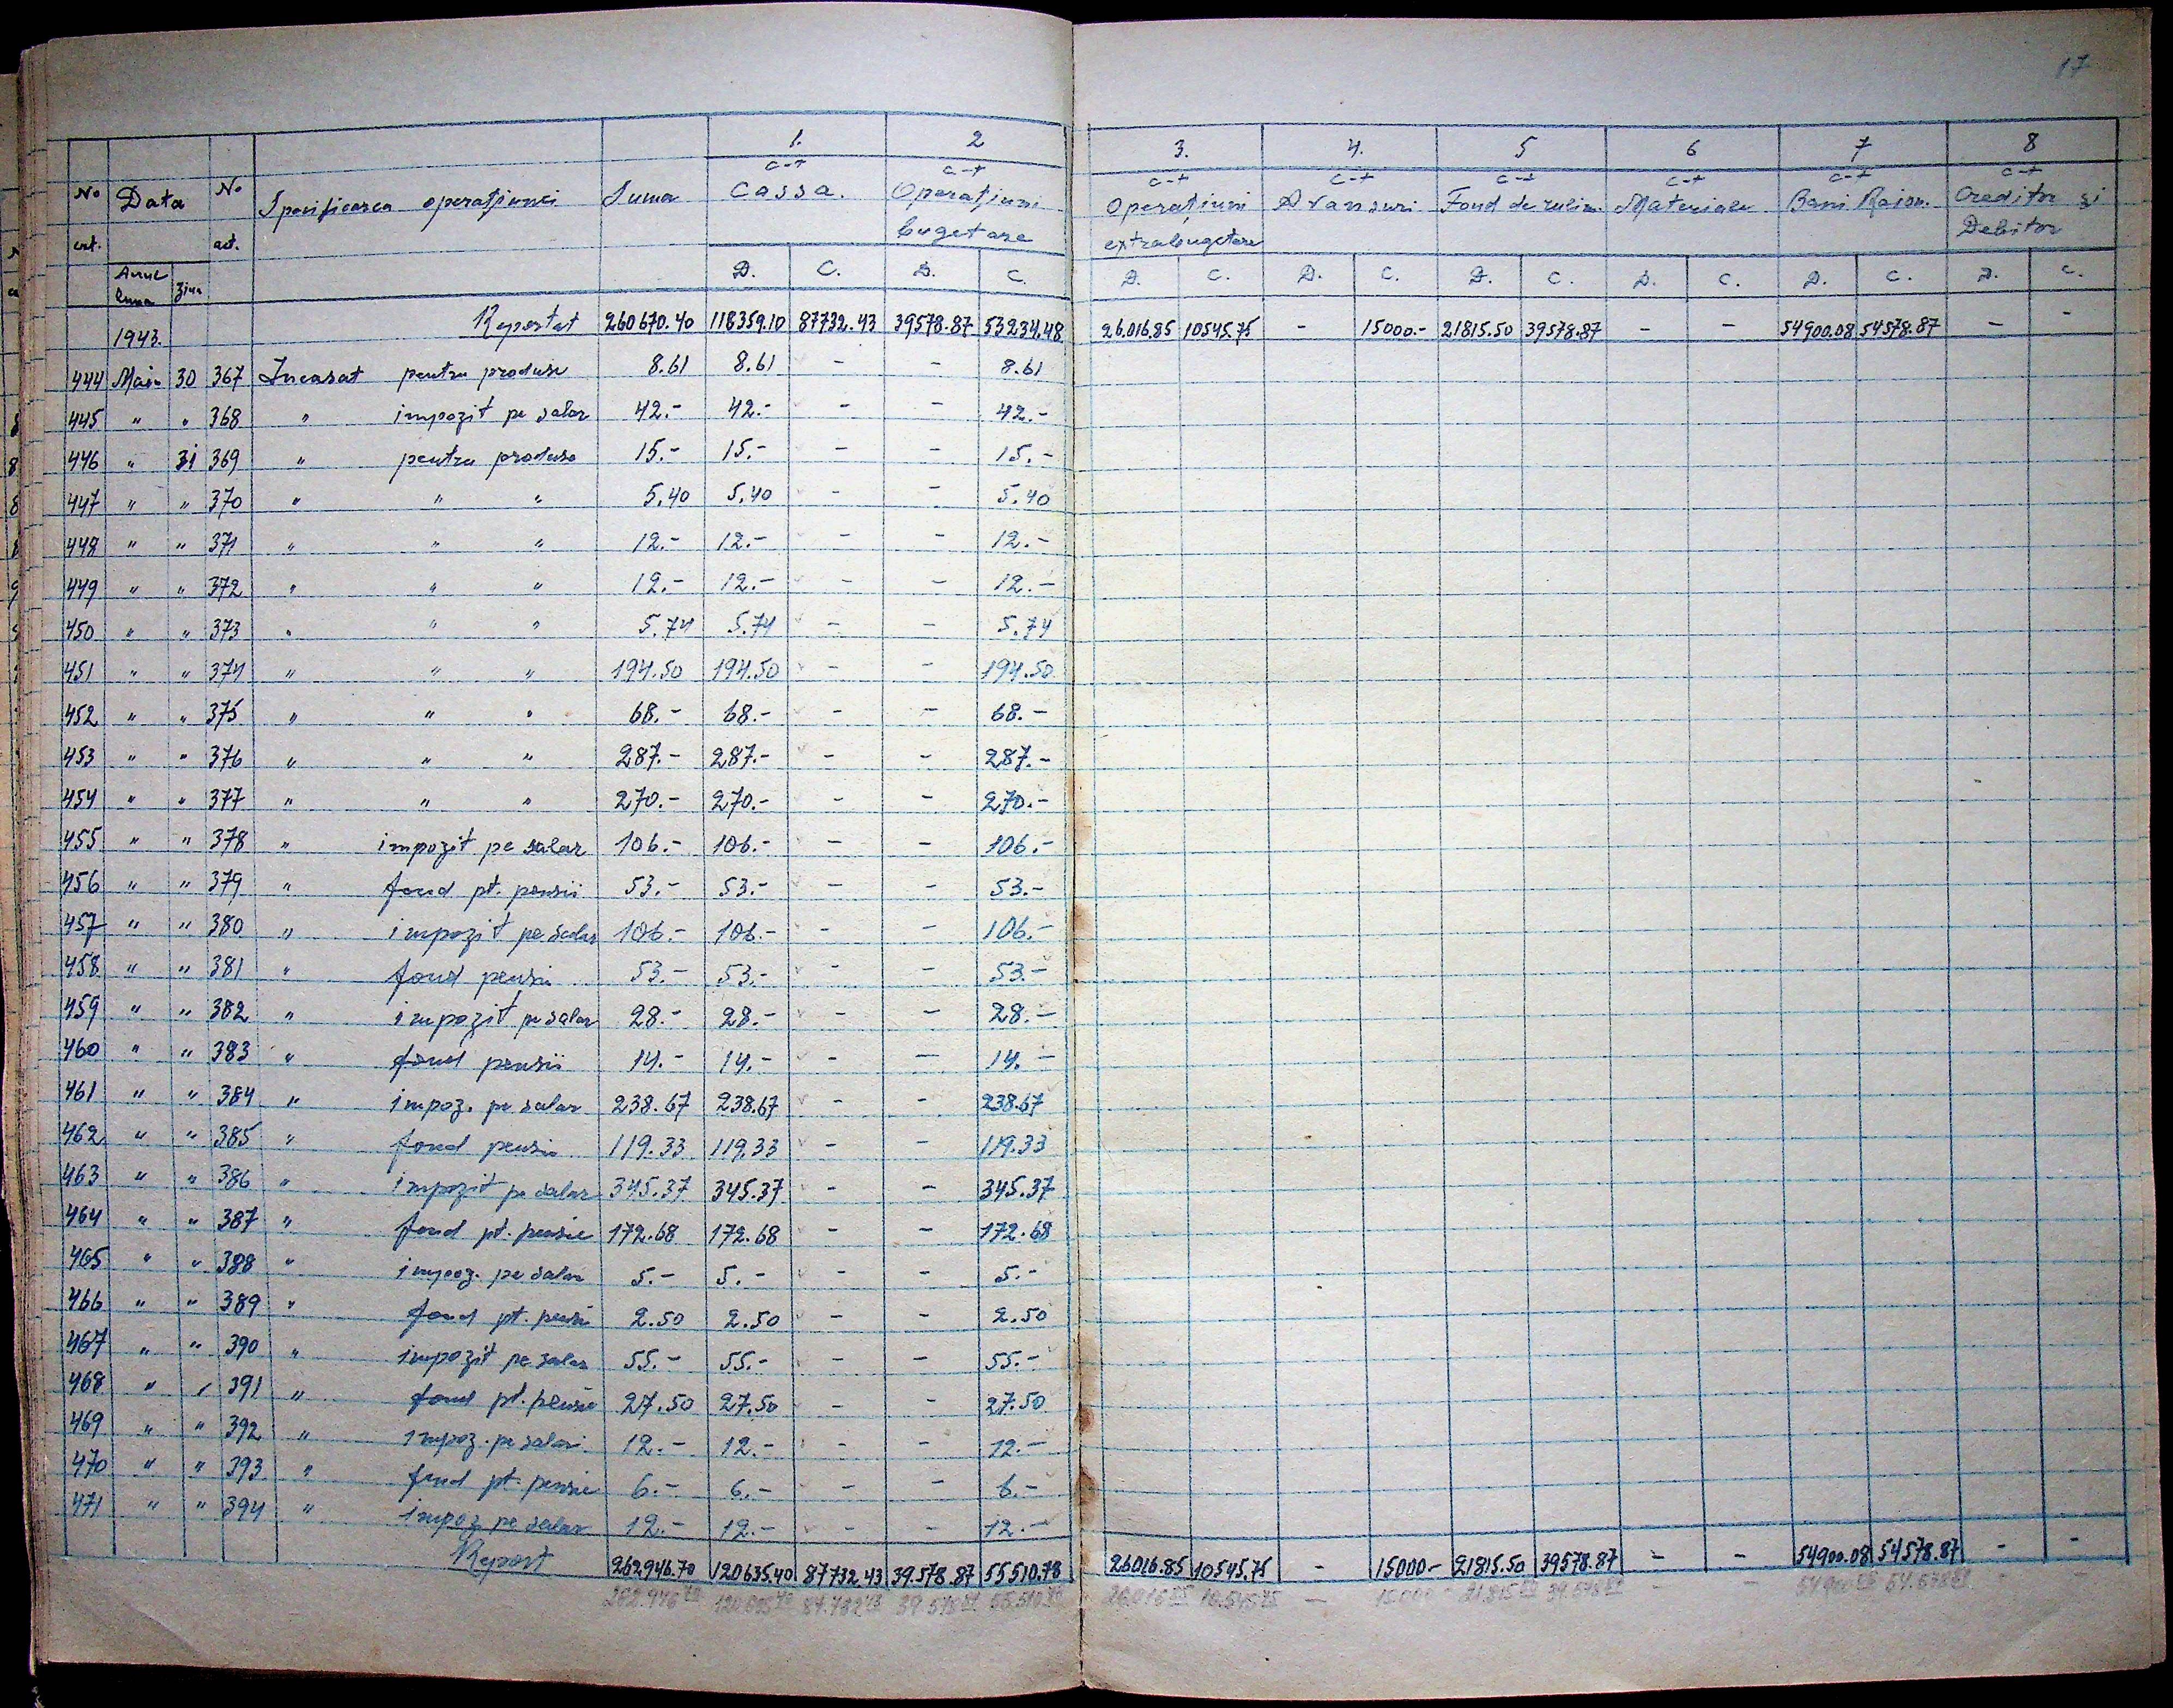 17
No crt. Data No act. Specificarea operaţiunei Suma 1. c-t Cassa. 2 c-t Operaţiuni bugetare 3. c-t Operaţiuni extrabugetare 4. c-t Avansuri 5 c-t Fond de rulm. 6 c-t Materiale 7 c-t Bani Raion. 8 c-t Creditor şi Debitor
Anul luna Ziua D. C. D. C. D. C. D. C. D. C. D. C. D. C. D. C.
1943. Reportat 260670.40 118359.10 87732.43 39578.87 53234.48 26.016.85 10545.75 - 15000.- 21815.50 39578.87 - - 54900.08 54578.87 - -
444 Mai 30 367 Incasat pentru produse 8.61 8.61 - - 8.61
445 " " 368 " impozit pe salar 42.- 42.- - - 42.-
446 " 31 369 " pentru produse 15.- 15.- - - 15.-
447 " " 370 " " " 5.40 5.40 - - 5.40
448 " " 371 " " " 12.- 12.- - - 12.-
449 " " 372 " " " 12.- 12.- - - 12.-
450 " " 373 " " " 5.74 5.74 - - 5.74
451 " " 374 " " " 194.50 194.50 - - 194.50
452 " " 375 " " " 68.- 68.- - - 68.-
453 " " 376 " " " 287.- 287.- - - 287.-
454 " " 377 " " " 270.- 270.- - - 270.-
455 " " 378 " impozit pe salar 106.- 106.- - - 106.-
456 " " 379 " fond pt. pensii 53.- 53.- - - 53.-
457 " " 380 " impozit pe salar 106.- 106.- - - 106.-
458 " " 381 " fond pensii 53.- 53.- - - 53.-
459 " " 382 " impozit pe salar 28.- 28.- - - 28.-
460 " " 383 " fond pensii 14.- 14.- - - 14.-
461 " " 384 " impoz. pe salar 238.67 238.67 - - 238.67
462 " " 385 " fond pensie 119.33 119.33 - - 119.33
463 " " 386 " impozit pe salar 345.37 345.37 - - 345.37
464 " " 387 " fond pt. pensie 172.68 172.68 - - 172.68
465 " " 388 " impoz. pe salar 5.- 5.- - - 5.-
466 " " 389 " fond pt. pensii 2.50 2.50 - - 2.50
467 " " 390 " impozit pe salar 55.- 55.- - - 55.-
468 " " 391 " fond pt. pensie 27.50 27.50 - - 27.50
469 " " 392 " impoz. pe salar 12.- 12.- - - 12.-
470 " " 393 " fond pt. pensie 6.- 6.- - - 6.-
471 " " 394 " impoz pe salar 12.- 12.- - - 12.-
Report 262946.70 120635.40 87732.43 39.578.87 55510.78 26016.85 10545.75 - 15000- 21815.50 39578.87 - - 54900.08 54578.87 - -